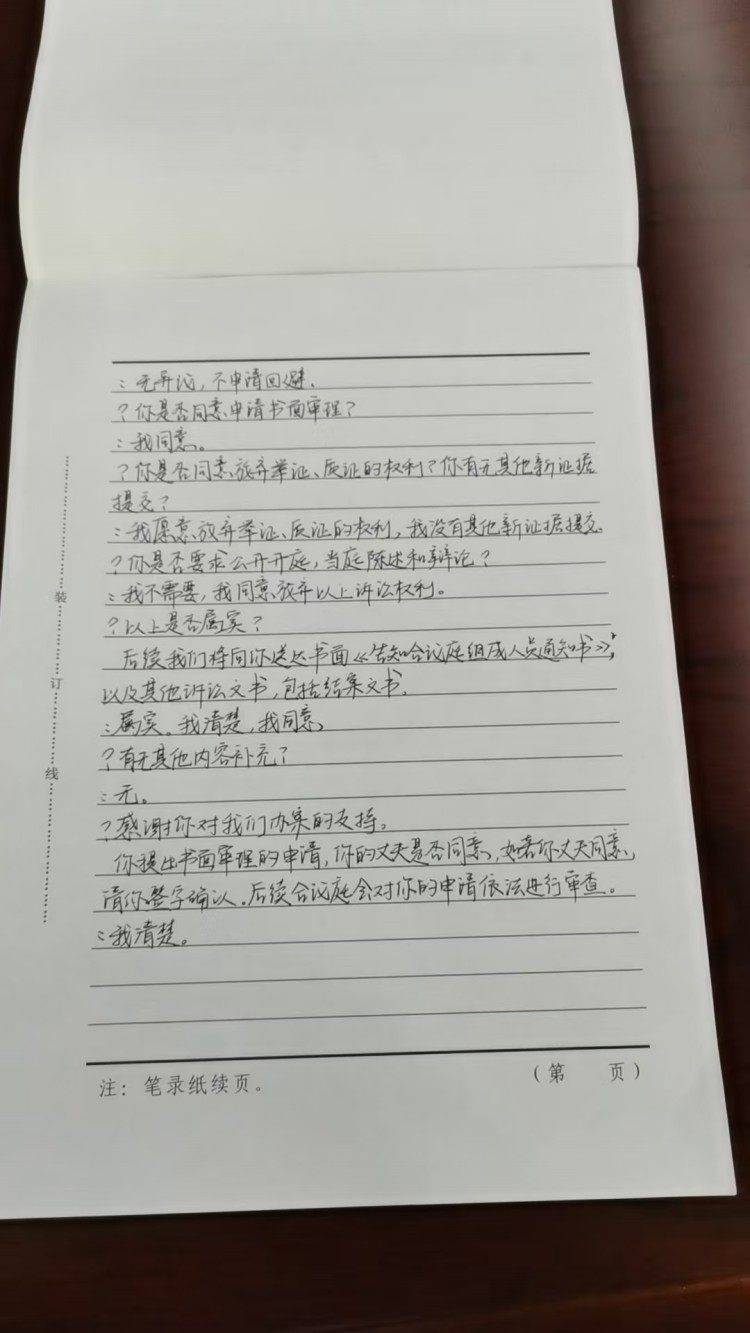 ：无异议，不申请回避.
？你是否同意申请书面审理？
：我同意。
？你是否同意放弃举证、质证的权利？你有无其他新证据
提交？
：我愿意放弃举证、质证的权利，我没有其他新证据提交.
？你是否要求公开开庭，当庭陈述和辩论？
：我不需要，我同意放弃以上诉讼权利。
？以上是否属实？
后续我们将向你送达书面《告知合议庭组成人员通知书》，
以及其他诉讼文书，包括结案文书.
：属实。我清楚，我同意.
？有无其他内容补充？
：无。
？感谢你对我们办案的支持。
你提出书面审理的申请，你的丈夫是否同意，如若你丈夫同意，
请你签字确认.后续合议庭会对你的申请依法进行审查。
：我清楚。
注：笔录纸续页。
（第　　页）
装
订
线